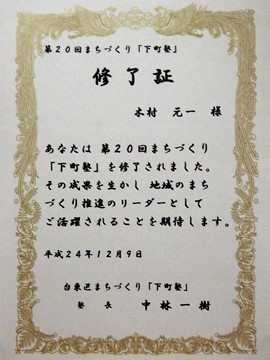 第20回まちづくり「下町塾」
修了証
木村 元一 様
あなたは 第20回まちづくり
「下町塾」を修了されました。
その成果を生かし 地域のまち
づくり推進のリーダーとして
ご活躍されることを期待します。
平成24年12月9日
台東区まちづくり「下町塾」
塾 長 中林 一樹